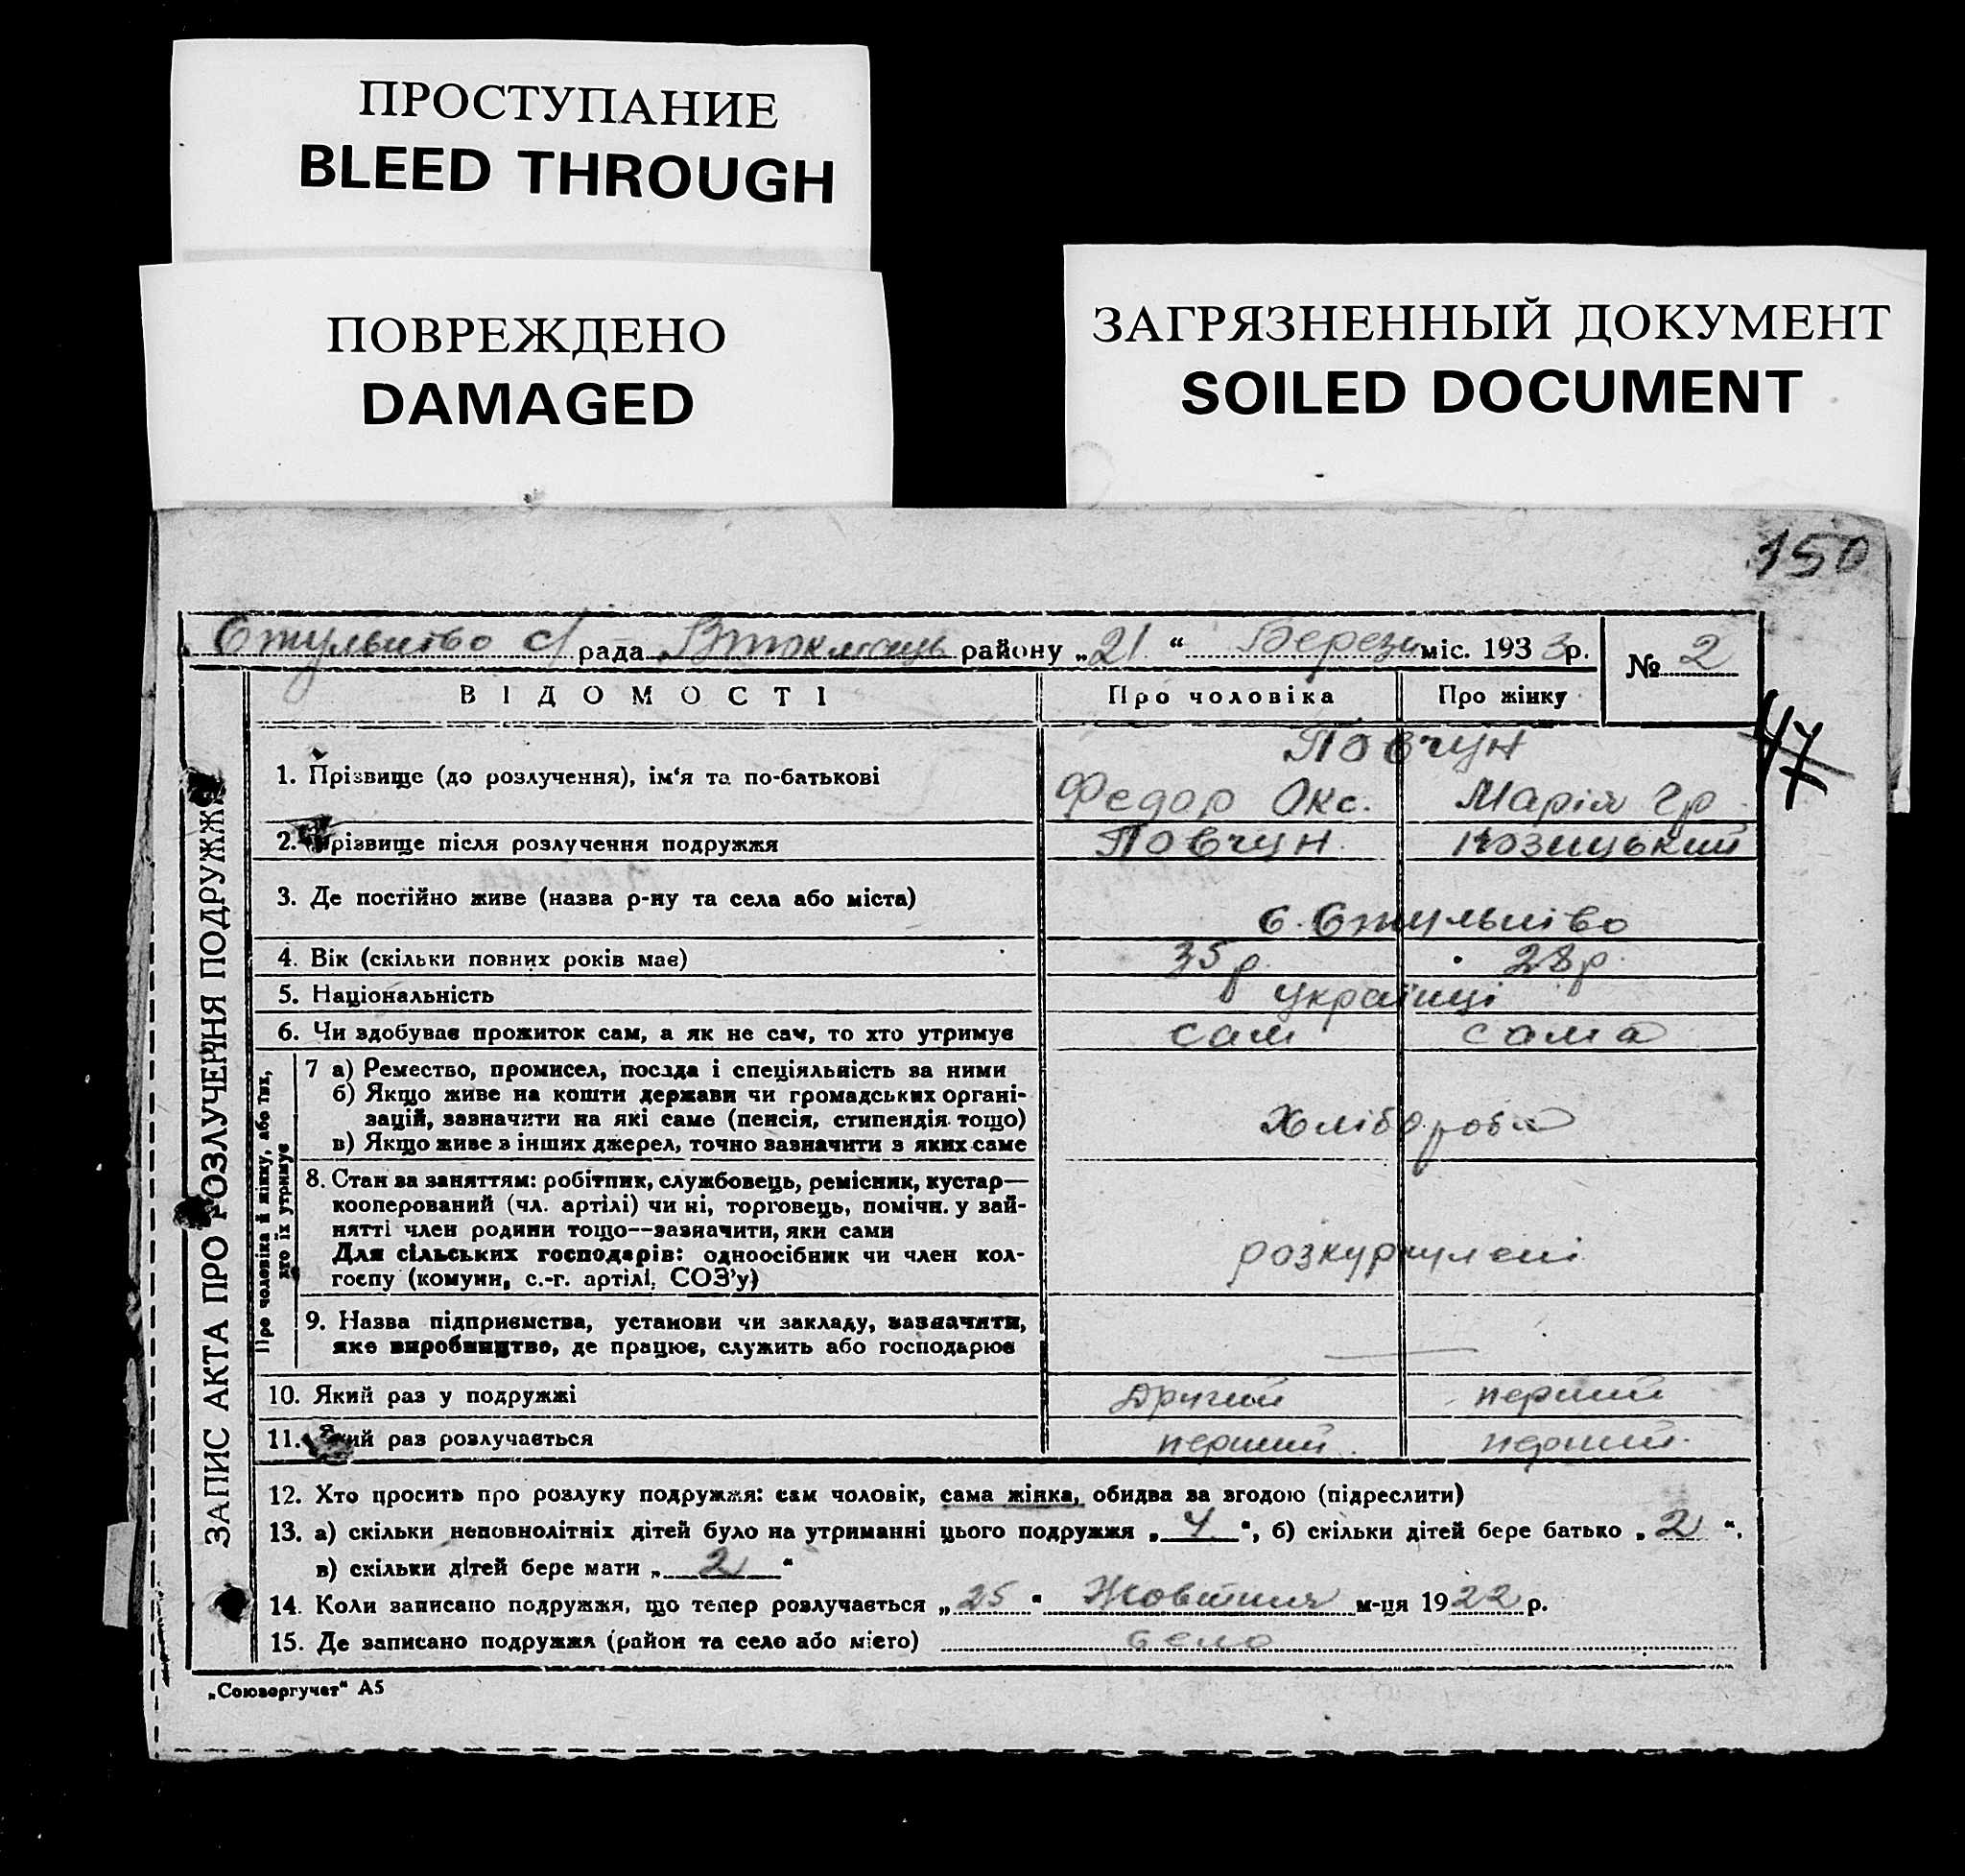 ПРОСТУПАНИЕ
BLEED THROUGH
ПОВРЕЖДЕНО
DAMAGED
ЗАГРЯЗНЕННЫЙ ДОКУМЕНТ
SOILED DOCUMENT
150
Стульнево с/ рада району „21“ Березн міс. 1933р.
№ 2
ВІДОМОСТІ Про чоловіка Про жінку
47
Повчун
1. Прізвище (до розлучення), ім‘я та по-батькові Федор Окс. Марія Гр
2. Прізвище після розлучення подружжя Повчун
3. Де постійно живе (назва р-ну та села або міста) с. Стульнєво
4. Вік (скільки повних років має) 35 р. 28 р.
5. Національність українці
6. Чи здобуває прожиток сам, а як не сам, то хто утримує сам сама
7 а) Ремество, промисел, посада і спеціяльність за ними
б) Якщо живе на кошти держави чи громадських органі-
зацій, зазначити на які саме (пенсія, стипендія тощо) Хлібороби
в) Якщо живе з інших джерел, точно зазначити з яких саме
8. Стан за заняттям: робітник, службовець, ремісник, кустар—
кооперований (чл. артілі) чи ні, торговець, помічн. у зай-
нятті член родини тощо—зазначити, яки сами
Для сільських господарів: одноосібник чи член кол- розкуркулені
госпу (комуни, с.-г. артілі, СОЗ’у)
9. Назва підприємства, установи чи закладу, зазначити,
яке виробництво, де працює, служить або господарює
10. Який раз у подружжі другий перший
11. Який раз розлучається перший перший
12. Хто просить про розлуку подружжя: сам чоловік, сама жінка, обидва за згодою (підреслити)
13. а) скільки неповнолітніх дітей було на утриманні цього подружжя „4“, б) скільки дітей бере батько „2“,
в) скільки дітей бере мати „2“
14. Коли записано подружжя, що тепер розлучається „25“ Жовтня м-ця 1922 р.
15. Де записано подружжя (район та село або місто) село
„Союзоргучет“ А5
ЗАПИС АКТА ПРО РОЗЛУЧЕННЯ ПОДРУЖЖЯ
Про чоловіка й жінку, або тих,
хто їх утримує